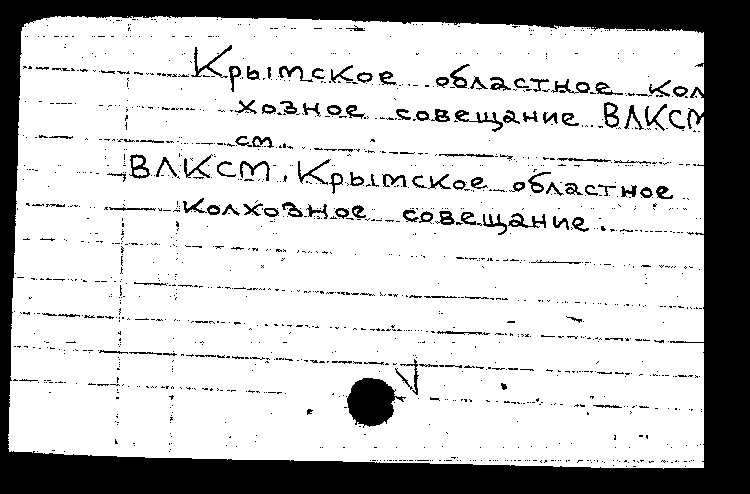 Крымское областное кол
хозное совещание ВЛКСМ
см.
ВЛКСМ. Крымское областное
колхозное совещание.